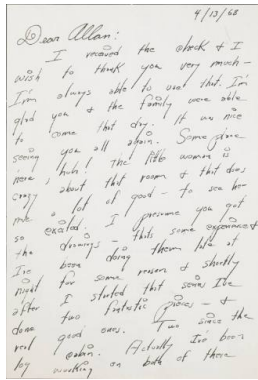 4/13/68
Dear Allan:
I received the check & I
wish to thank you very much -
I'm always able to use that. I'm
glad you & the family were able
to come that day. It was nice
seeing you all again. Some place
here, huh! the little woman is
crazy about that room & that does
me a lot of good - to see her
so excited. I presume you got
the drawings - thats some experience &
I've been doing them late at
night for some reason & shortly
after I started that series I've
done two fantastic pieces - &
real good ones. Two since the
Actually I've been
working on both of these